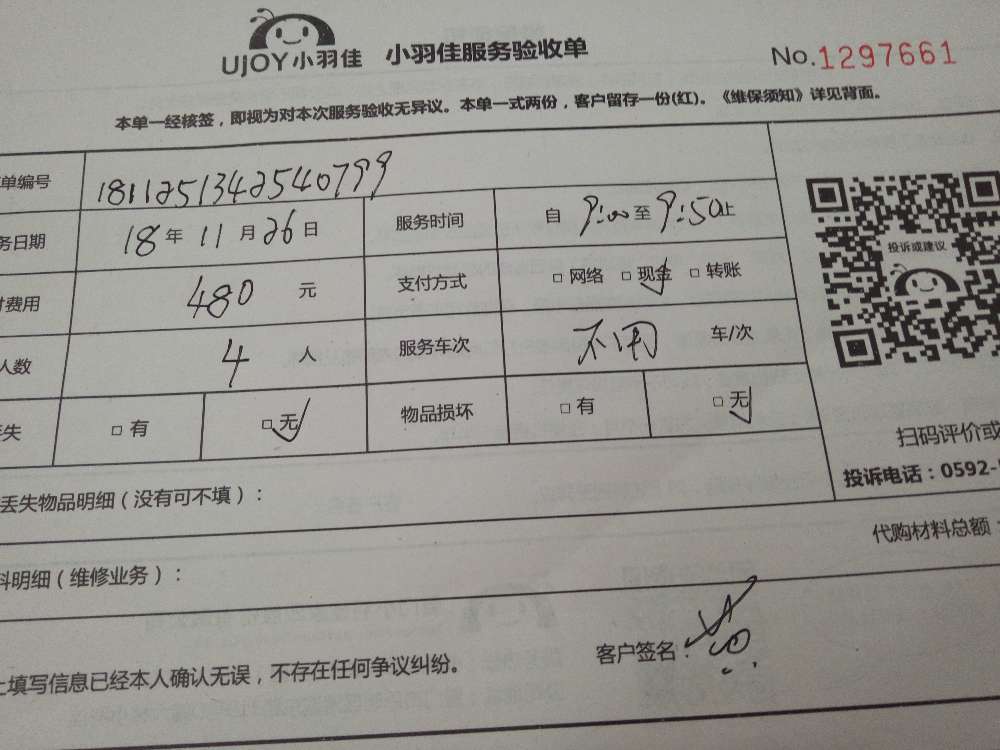 UJOY小羽佳 小羽佳服务验收单 No.1297661
本单一经核签，即视为对本次服务验收无异议。本单一式两份，客户留存一份(红)。《维保须知》详见背面。
单编号 1811251342540799
务日期 18年11月26日 服务时间 自9:00至9:50止
投诉或建议
付费用 480元 支付方式 □网络 □现金✓ □转账
人数 4人 服务车次 不用 车/次
丢失 □有 □无✓ 物品损坏 □有 □无✓
扫码评价或
丢失物品明细（没有可不填）： 投诉电话：0592-
代购材料总额：
料明细（维修业务）：
上填写信息已经本人确认无误，不存在任何争议纠纷。 客户签名：